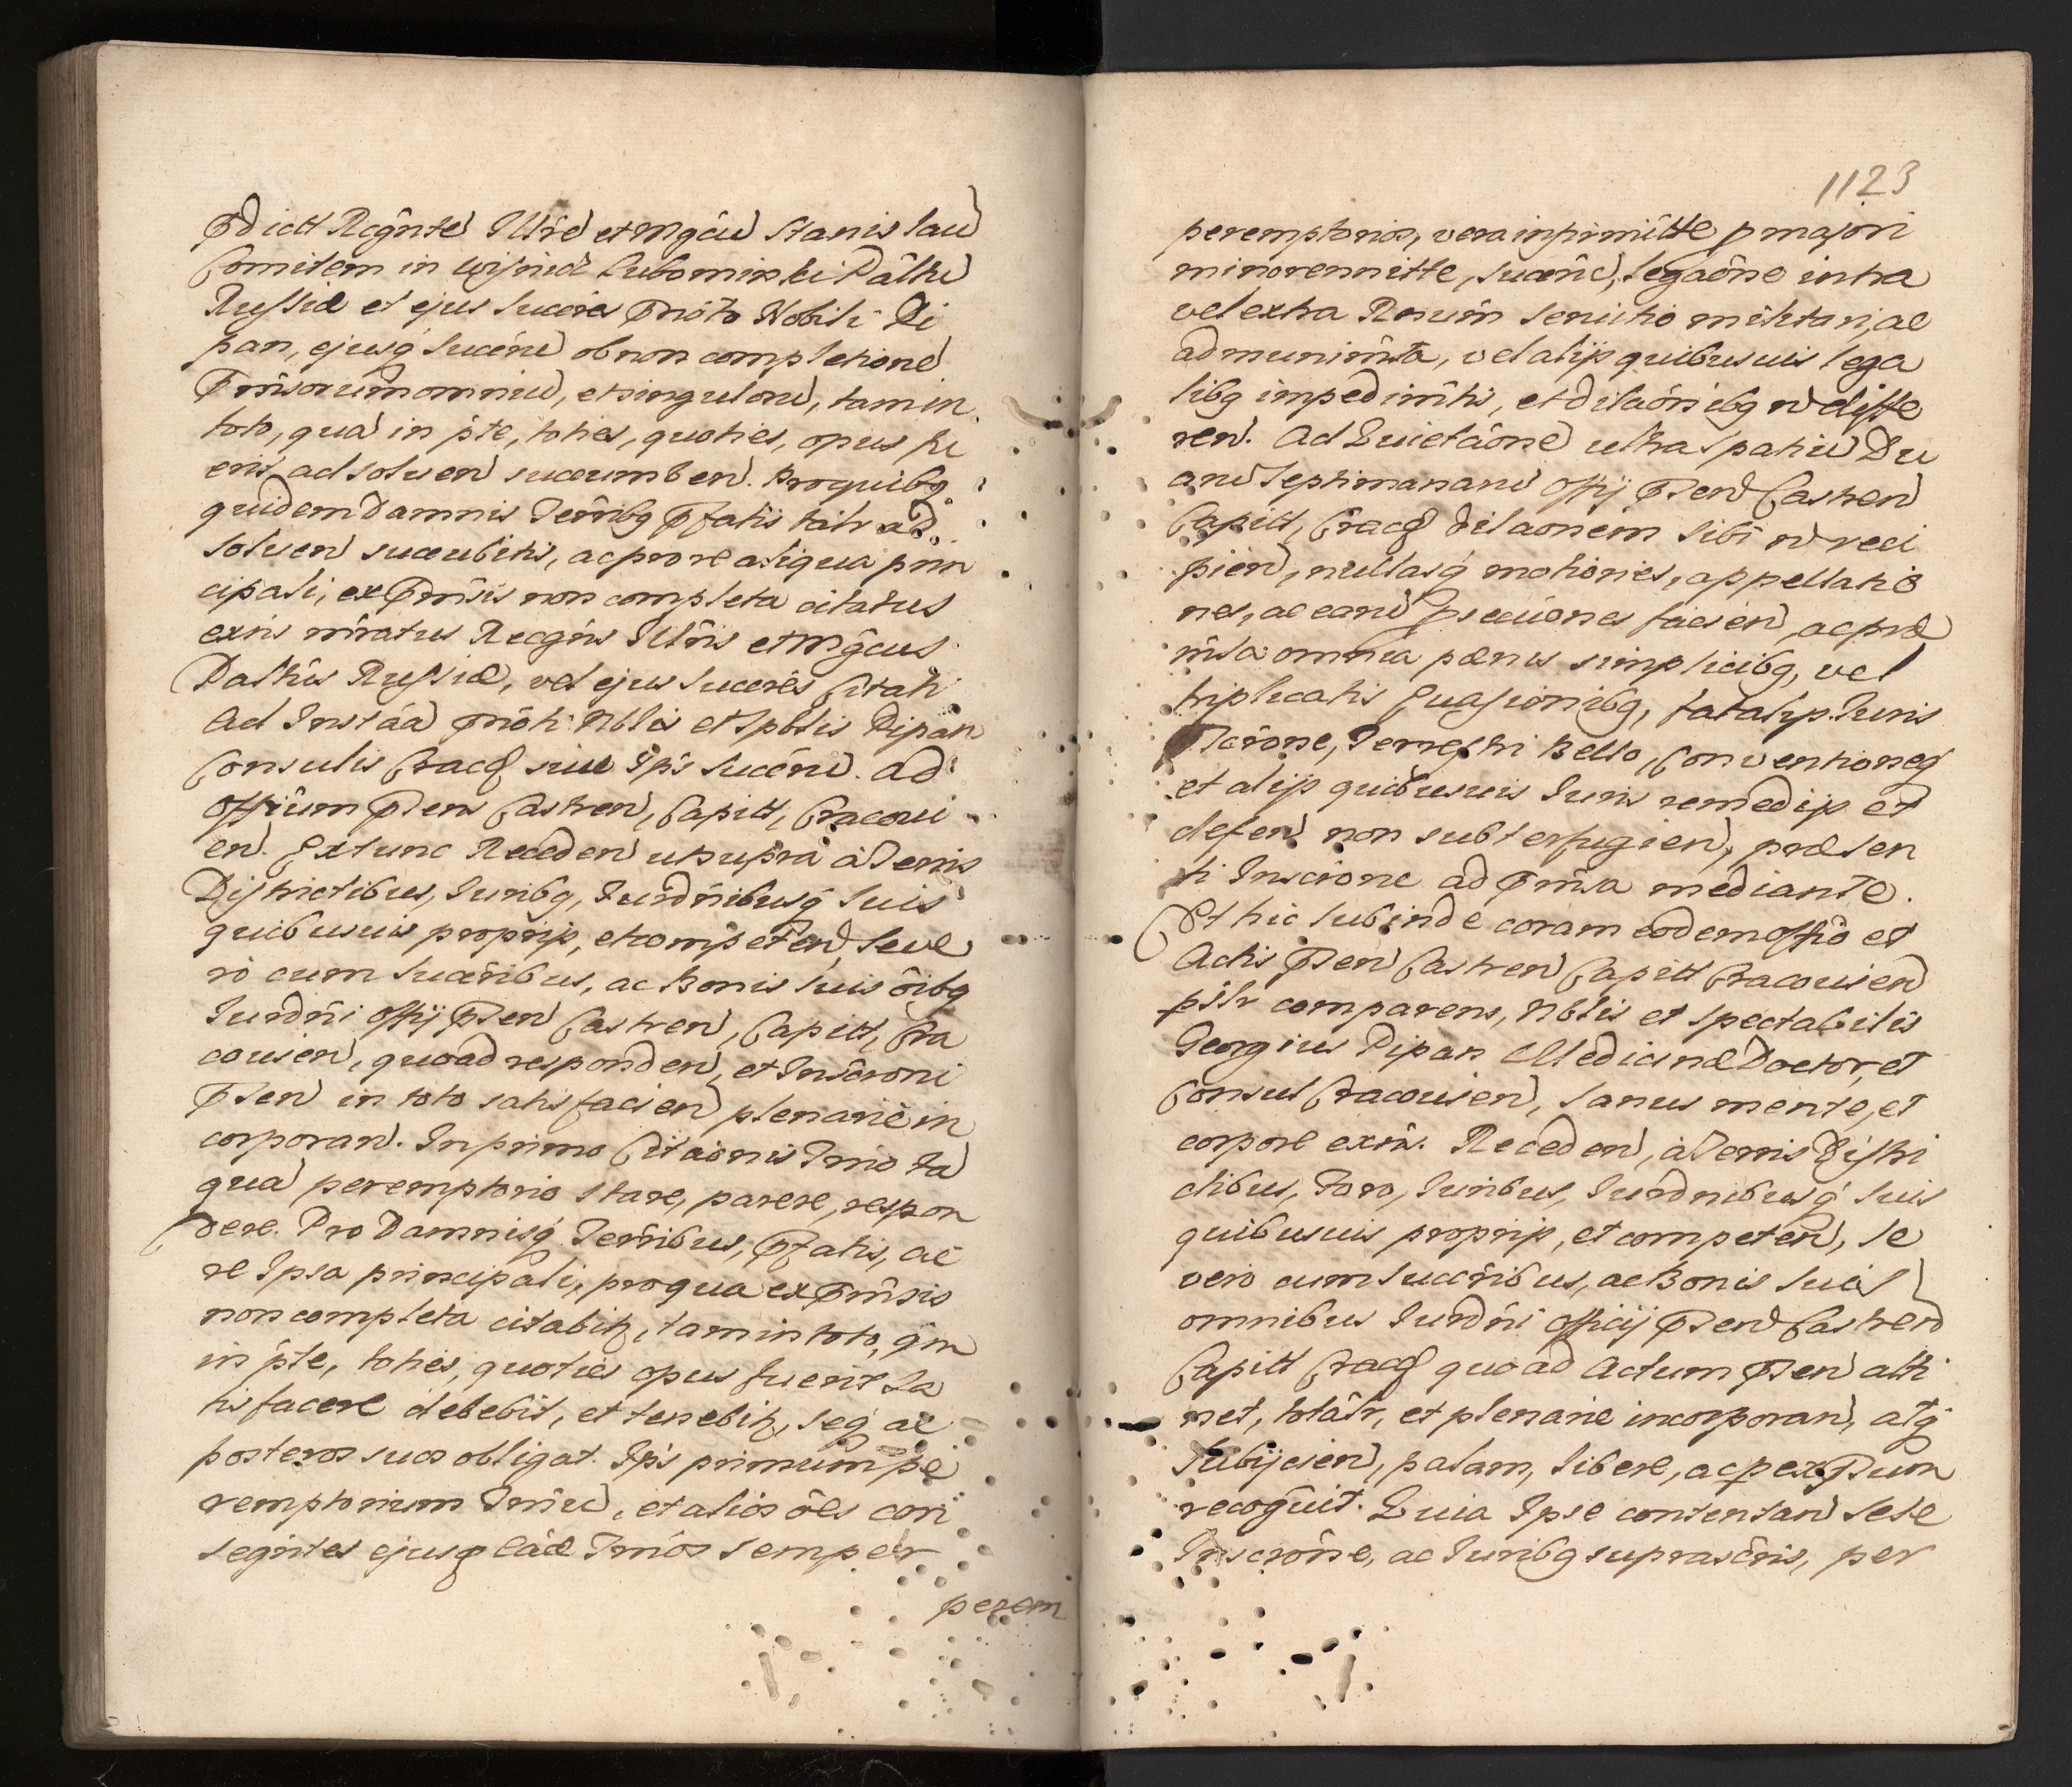 Pdictt Rcgnte Illre et Mgcu Stanislau
Comitem in Wisnicz Lubomirski Palthu
Russiæ et ejus succres Pnoto Nobili Pi
pan, ejusq succru ob non completione
Pmissorum omniu, et singuloru, tam in
toto, qua in pte, toties, quoties, opus fu
erit, ad soluen succumben. Pro quibq
quidem Damnis Terribq Pfatis taliter ad
soluen succubitis, ac pro re aliqua prin
cipali, ex Pmissis non completa citatus
exns mratus Recgns Illris et Mgcus
Palthis Russiæ, vel ejus succres Citati
Ad Instaa Pnoti Nblis et Spblis Pipan
Consulis Crac siue Ips succru. ad
Offium Psens Castren, Capitt, Cracoui
en. Extunc Receden ut supra à Terris
Districtibus, Juribq, Jurdnibusq suis
quibusuis proprijs, et competen, seue
ro cum succribus, ac Bonis suis oibq
Jurdni Offij Psen Castren, Capitt, Cra
couien, quoad responden, et Inscroni
Psen in toto satisfacien plenariè in
corporan. In primo Citaonis Tmio ta
qua peremptorio stare, parere, respon
dere. Pro Damnisq Terribus, Pfatis, ac
re Ipsa principali, pro qua ex Pmisis
non completa citabit, tam in toto, qm
in pte, toties, quoties opus fuerit sa
tisfacere debebit, et tenebit, seq ac
posteros suos obligat. Ips primum pe
remptorium Tmiu, et alios oes con
segntes ejusq eaæ Tmos semper
perem
1123
peremptorios, vera infirmitte p majori
minorennitte, succru, legaone intra
vel extra Rnum seruitio militari, ac
ad munimta, vel alijs quibusuis lega
libq impedimtis, et dilaonibq n diffe
ren. Ad Quietaone ultra spatiu Du
aru septimanaru Offij Psen Castren
Capitt, Crac dilaonem sibi n reci
pien, nullasq motiones, appellatio
nes, ac earu psecuones facien, ac præ
missa omnia pænis simplicibq, vel
triplicatis Euasionibq, fatalijs Juris
Tcrone, Terrestri Bello, Conventioneq
et alijs quibusuis Juris remedijs et
defen non subterfugien, præsen
ti Inscrone ad Pmisa mediante.
Et hic subinde coram eodem Offio et
Actis Psen Castren Capitt Cracouien
pslr comparens, Nblis et spectabilis
Georgius Pipan Medicinæ Doctor, et
Consul Cracouien, sanus mente, et
corpore exns. Receden, à Terris Distri
ctibus, Foro, Juribus, Jurdnibusq suis
quibusuis proprijs, et competen, se
vero cum succribus, ac Bonis suis
omnibus Jurdni Officij Psen Castren
Capitt Crac quoad Actum Psen atti
net, totalr, et plenarie incorporan, atq
subijcien, palam, libere, ac p exPsum
recognit. Quia Ipse contentan sese
Inscrone, ac Juribq suprascris, per